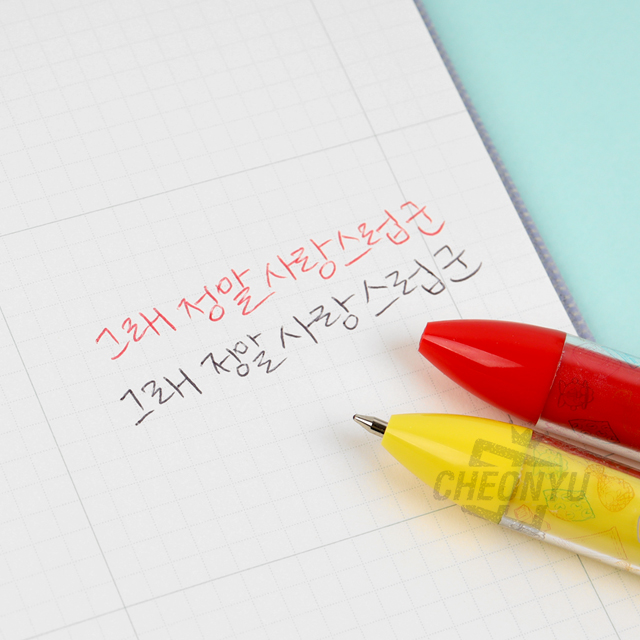 그래 정말 사랑스럽군
그래 정말 사랑스럽군
CHEONYU